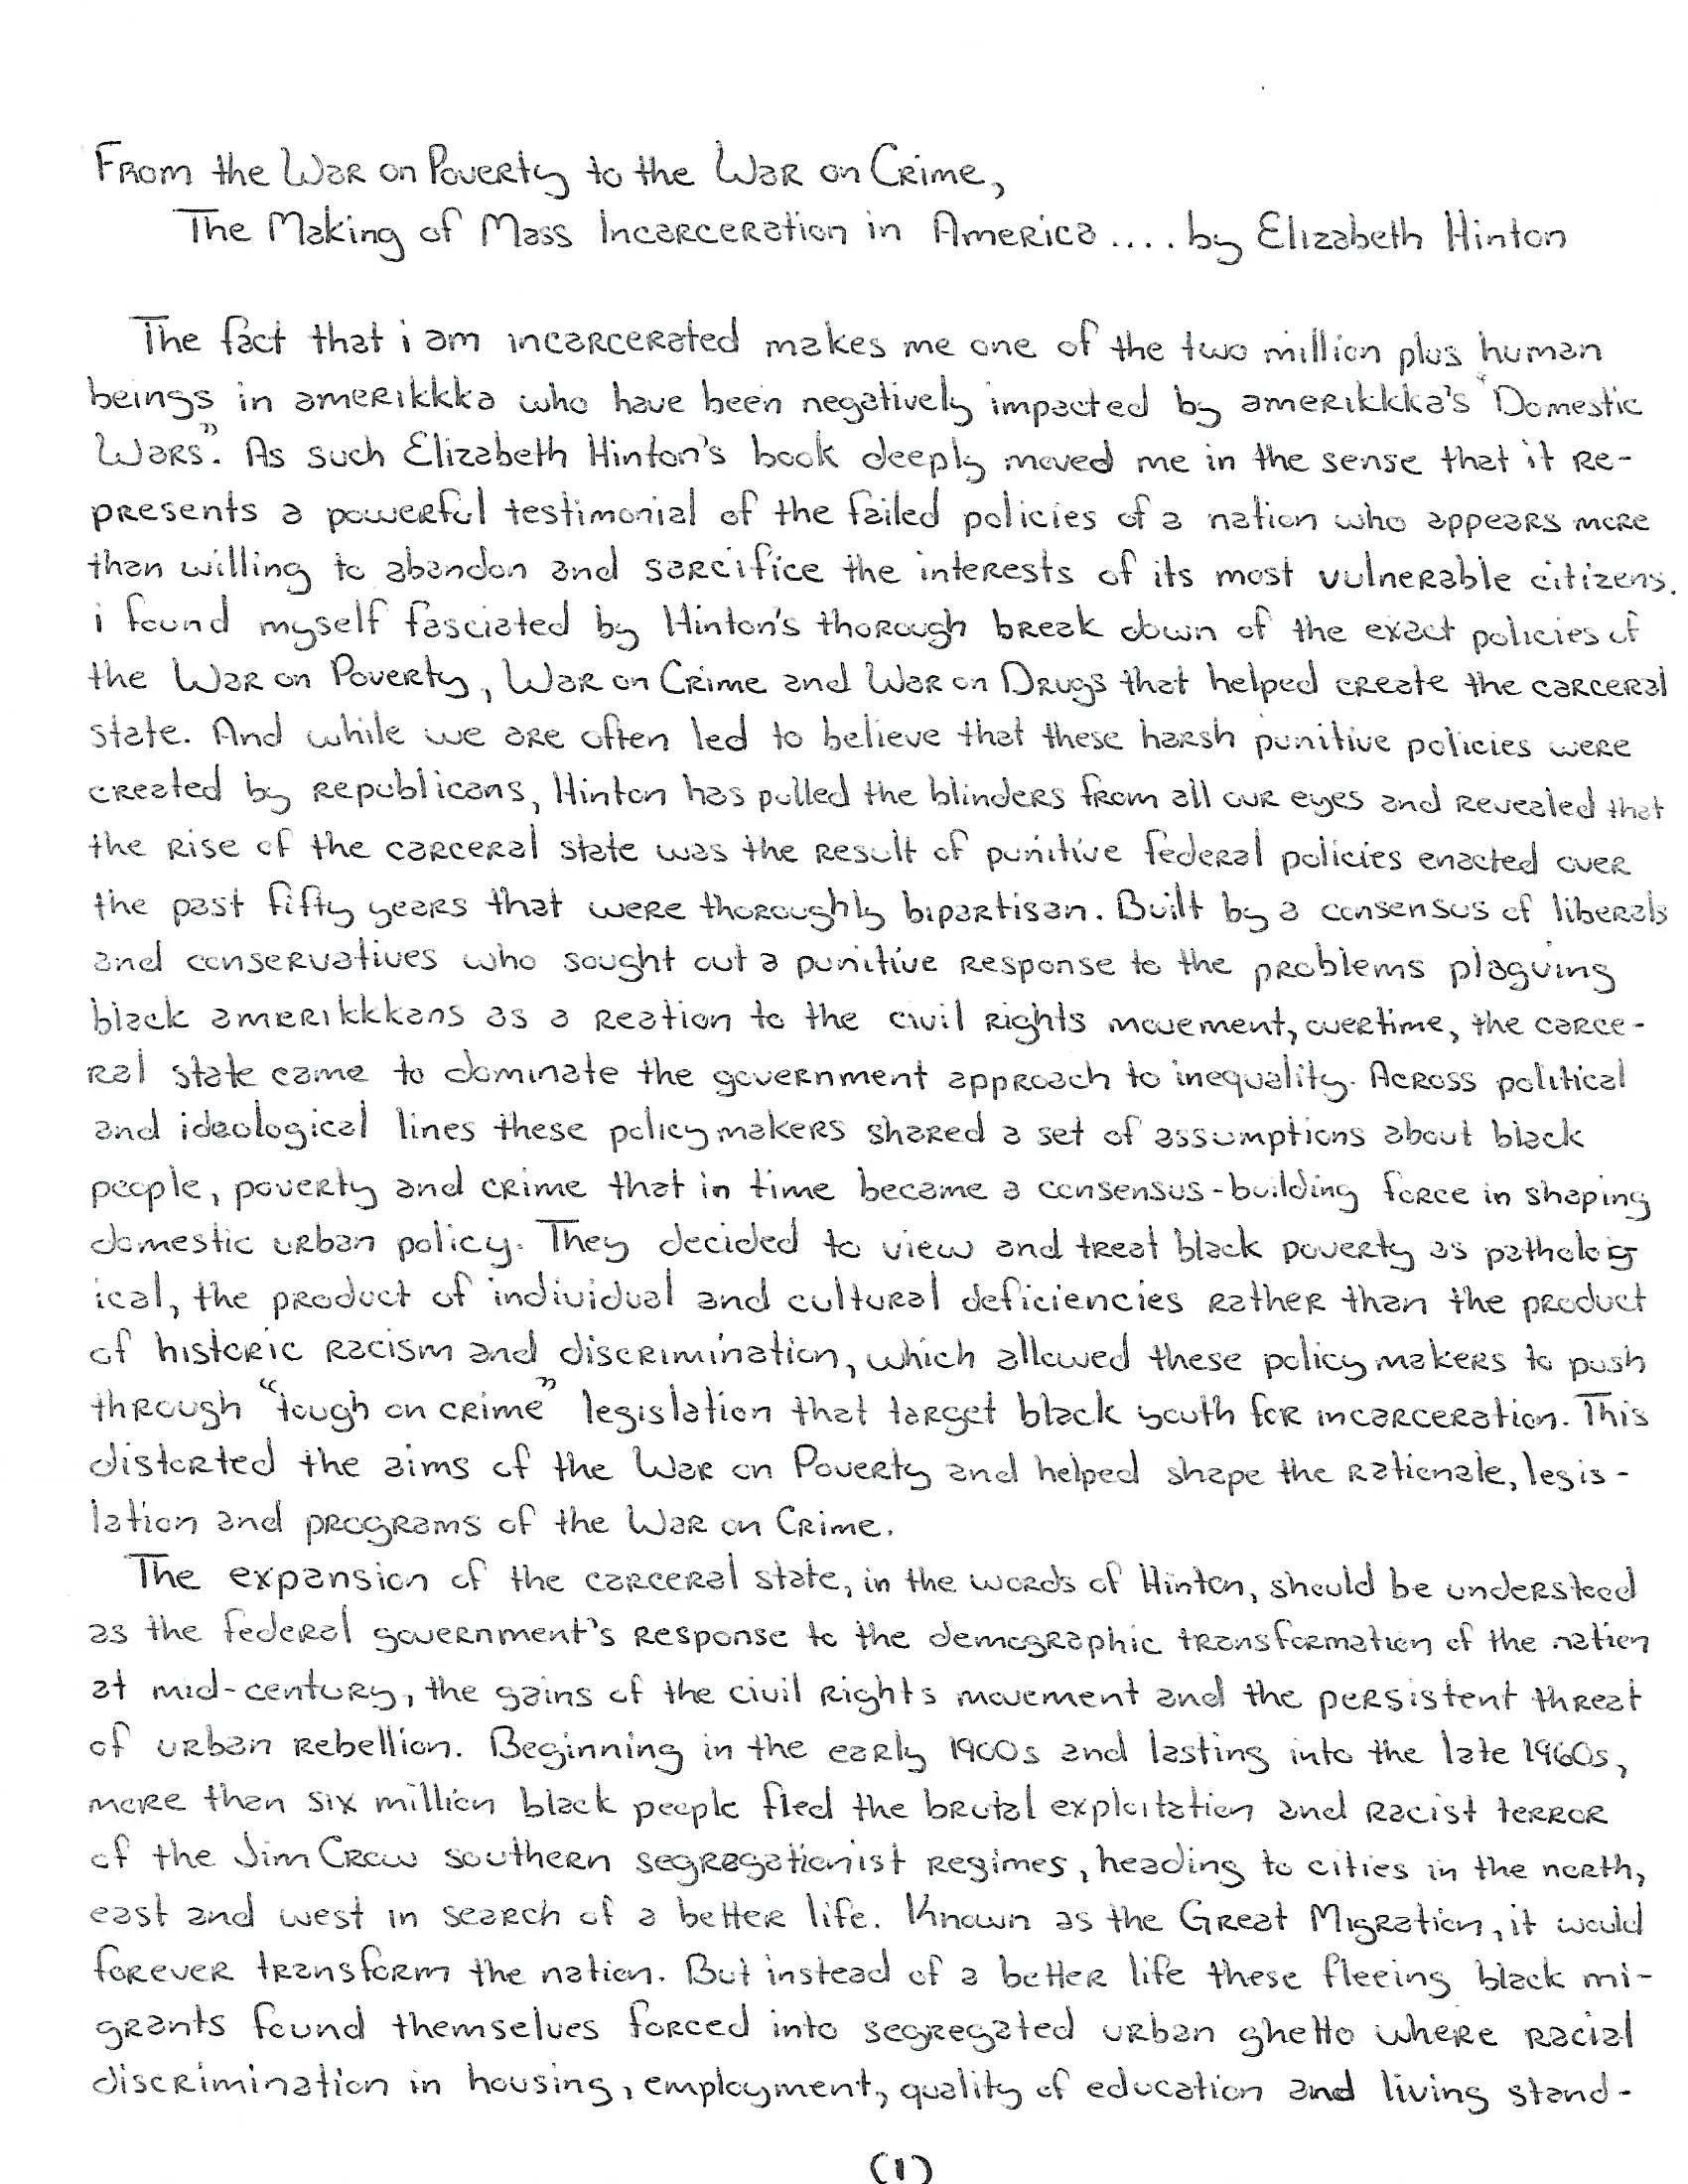 From the War on Poverty to the War on Crime,
The Making of Mass Incarceration in America .... by Elizabeth Hinton
The fact that i am incarcerated makes me one of the two million plus human
beings in amerikkka who have been negatively impacted by amerikkka's "Domestic
Wars". As such Elizabeth Hinton's book deeply moved me in the sense that it re-
presents a powerful testimonial of the failed policies of a nation who appears more
than willing to abandon and sarcifice the interests of its most vulnerable citizens.
i found myself fasciated by Hinton's thorough break down of the exact policies of
the War on Poverty, War on Crime and War on Drugs that helped create the carceral
state. And while we are often led to believe that these harsh punitive policies were
created by republicans, Hinton has pulled the blinders from all our eyes and revealed that
the rise of the carceral state was the result of punitive federal policies enacted over
the past fifty years that were thoroughly bipartisan. Built by a consensus of liberals
and conservatives who sought out a punitive response to the problems plaguing
black amerikkkans as a reation to the civil rights movement, overtime, the carce-
ral state came to dominate the government approach to inequality. Across political
and ideological lines these policymakers shared a set of assumptions about black
people, poverty and crime that in time became a consensus-building force in shaping
domestic urban policy. They decided to view and treat black poverty as patholog
ical, the product of individual and cultural deficiencies rather than the product
of historic racism and discrimination, which allowed these policymakers to push
through "tough on crime" legislation that target black youth for incarceration. This
distorted the aims of the War on Poverty and helped shape the rationale, legis-
lation and programs of the War on Crime.
The expansion of the carceral state, in the words of Hinton, should be understood
as the federal government's response to the demographic transformation of the nation
at mid-century, the gains of the civil rights movement and the persistent threat
of urban rebellion. Beginning in the early 1900s and lasting into the late 1960s,
more than six million black people fled the brutal exploitation and racist terror
of the Jim Crow southern segregationist regimes, heading to cities in the north,
east and west in search of a better life. Known as the Great Migration, it would
forever transform the nation. But instead of a better life these fleeing black mi-
grants found themselves forced into segregated urban ghetto where racial
discrimination in housing, employment, quality of education and living stand-
(1)